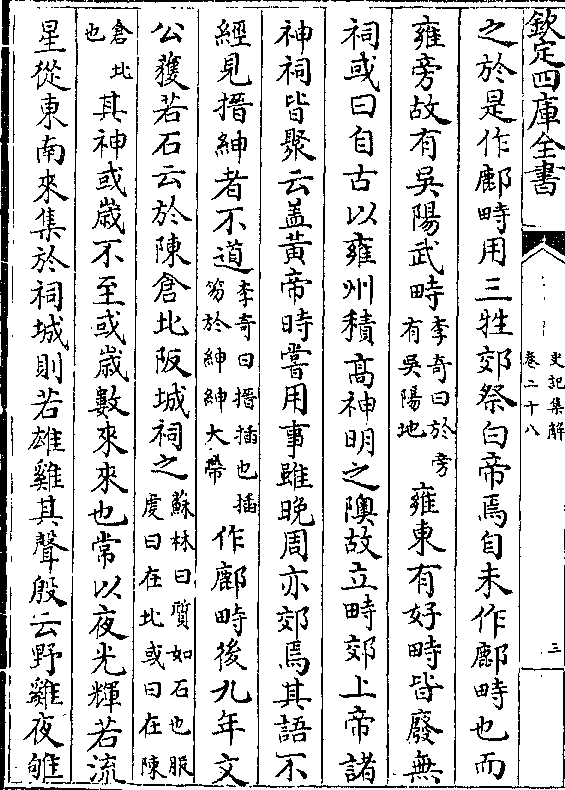 欽定四庫全書
史記集解
卷二十八
三
之於是作鄜畤用三牲郊祭白帝焉自未作鄜畤也而
雍旁故有吳陽武畤李奇曰於旁有吳陽地雍東有好畤皆廢無
祠或曰自古以雍州積高神明之隩故立畤郊上帝諸
神祠皆聚云盖黃帝時嘗用事雖晚周亦郊焉其語不
經見搢紳者不道李奇曰搢插也插笏於紳紳大帶作鄜畤後九年文
公獲若石云於陳倉北阪城祠之蘇林曰質如石也服䖍曰在北或曰在陳
倉北也其神或歳不至或歳數來來也常以夜光輝若流
星從東南來集於祠城則若雄雞其聲殷云野雞夜雊